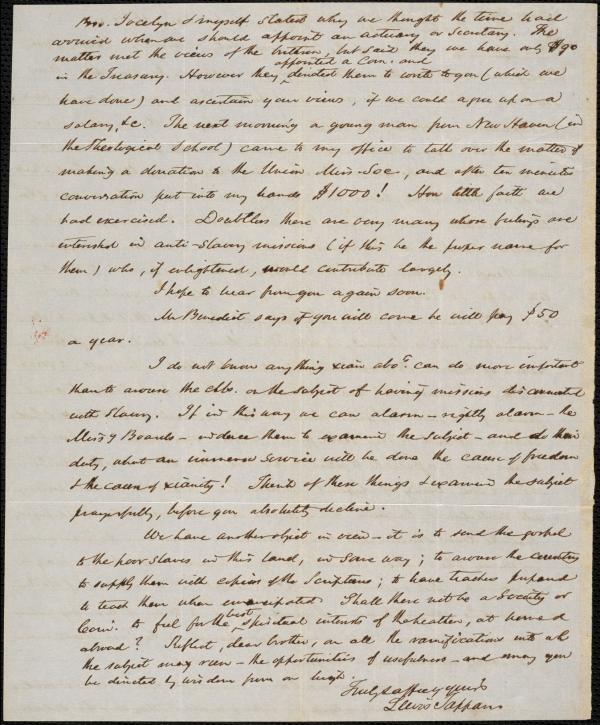 Bro. Jocelyn & myself stated why we thought the time had
arrived when we should appoint an actuary or Secretary. The
matter met the views of the brethren, but said they we have only $90
in the Treasury. However they appointed a Com. and directed them to write to you (which we
have done) and ascertain your views, if we could agree upon a
salary, &c. The next morning a young man from New Haven (in
the Theological School) came to my office to talk over the matter of
making a donation to the Union Miss. Soc. and after ten minutes
conversation put into my hands $1000! How little faith we
had exercised. Doubtless there are very many whose feelings are
interested in anti-slavery missions (if this be the proper name for
them) who, if enlightened, would contribute largely.
I hope to hear from you again soon.
Mr Benedict says if you will come he will pay $50
a year.
I do not know anything xian abo. can do more important
than to arouse the chh. on the subject of having missions disconnected
with Slavery. If in this way we can alarm - rightly alarm - the
Miss'y Boards - induce them to examine the subject - and do their
duty, what an immense service will be done the cause of freedom
& the cause of xianity! Think of these things & examine the subject
prayerfully, before you absolutely decline.
We have another object in view - it is to send the gospel
to the poor slaves in this land, in some way; to arouse the country
to supply them with copies of the Scriptures; to have teachers prepared
to teach them when emancipated. Shall there not be a Society or
Com. to feel for the best spiritual interests of the heathen, at home &
abroad? Reflect, dear brother, on all the ramifications into wh
the subject may run - the opportunities of usefulness - and may you
be directed by wisdom from on high.
Truly & affec'y yours
Lewis Tappan